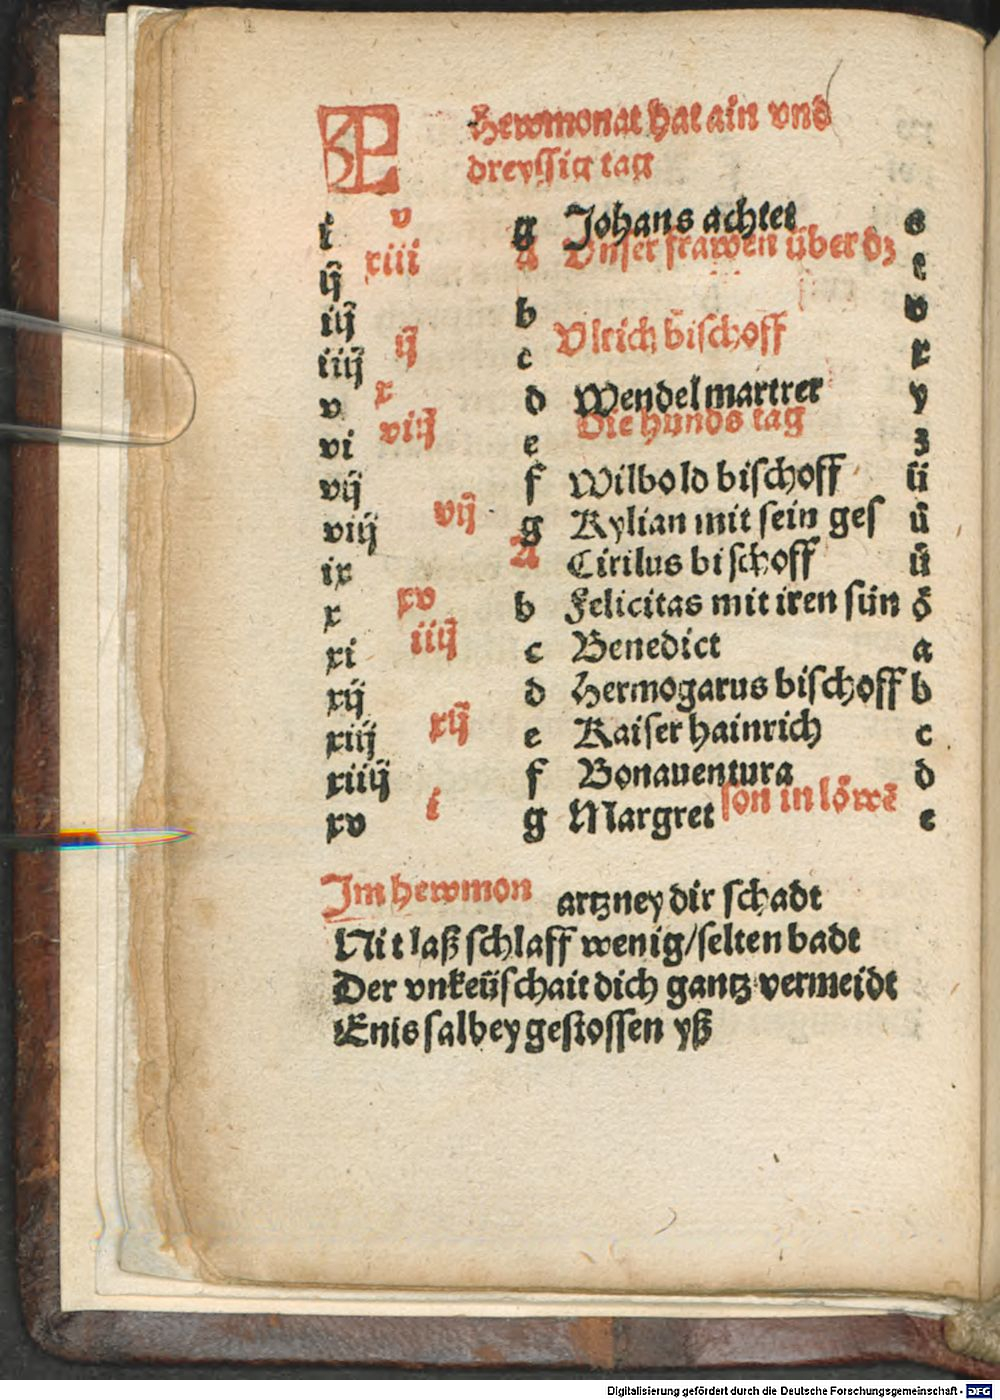 KL Hewmonat hat ain vnd
dreyssig tag
i v g Johans achtet s
ij xiii A Vnser frawen über dz t
iij b v
iiij ij c Vlrich bischoff x
v x d Wendel martrer y
vi viij e Die hunds tag z
vij f Wilbold bischoff
viij vij g Kylian mit sein ges
ix A Cirilus bischoff
x xv b Felicitas mit iren sün
xi iiij c Benedict a
xij d Hermogarus bischoff b
xiij xij e Kaiser hainrich c
xiiij f Bonauentura d
xv i g Margret son in löwē e
Im hewmon artzney dir schadt
Nit laß schlaff wenig/selten badt
Der vnkeüschait dich gantz vermeidt
Enis salbey gestossen yß
Digitalisierung gefördert durch die Deutsche Forschungsgemeinschaft - DFG